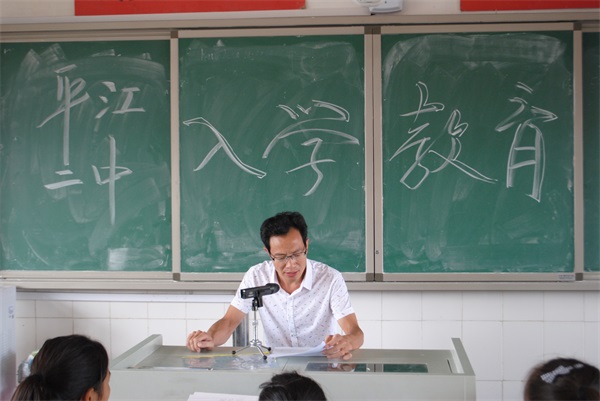 平江
二中
入学教育